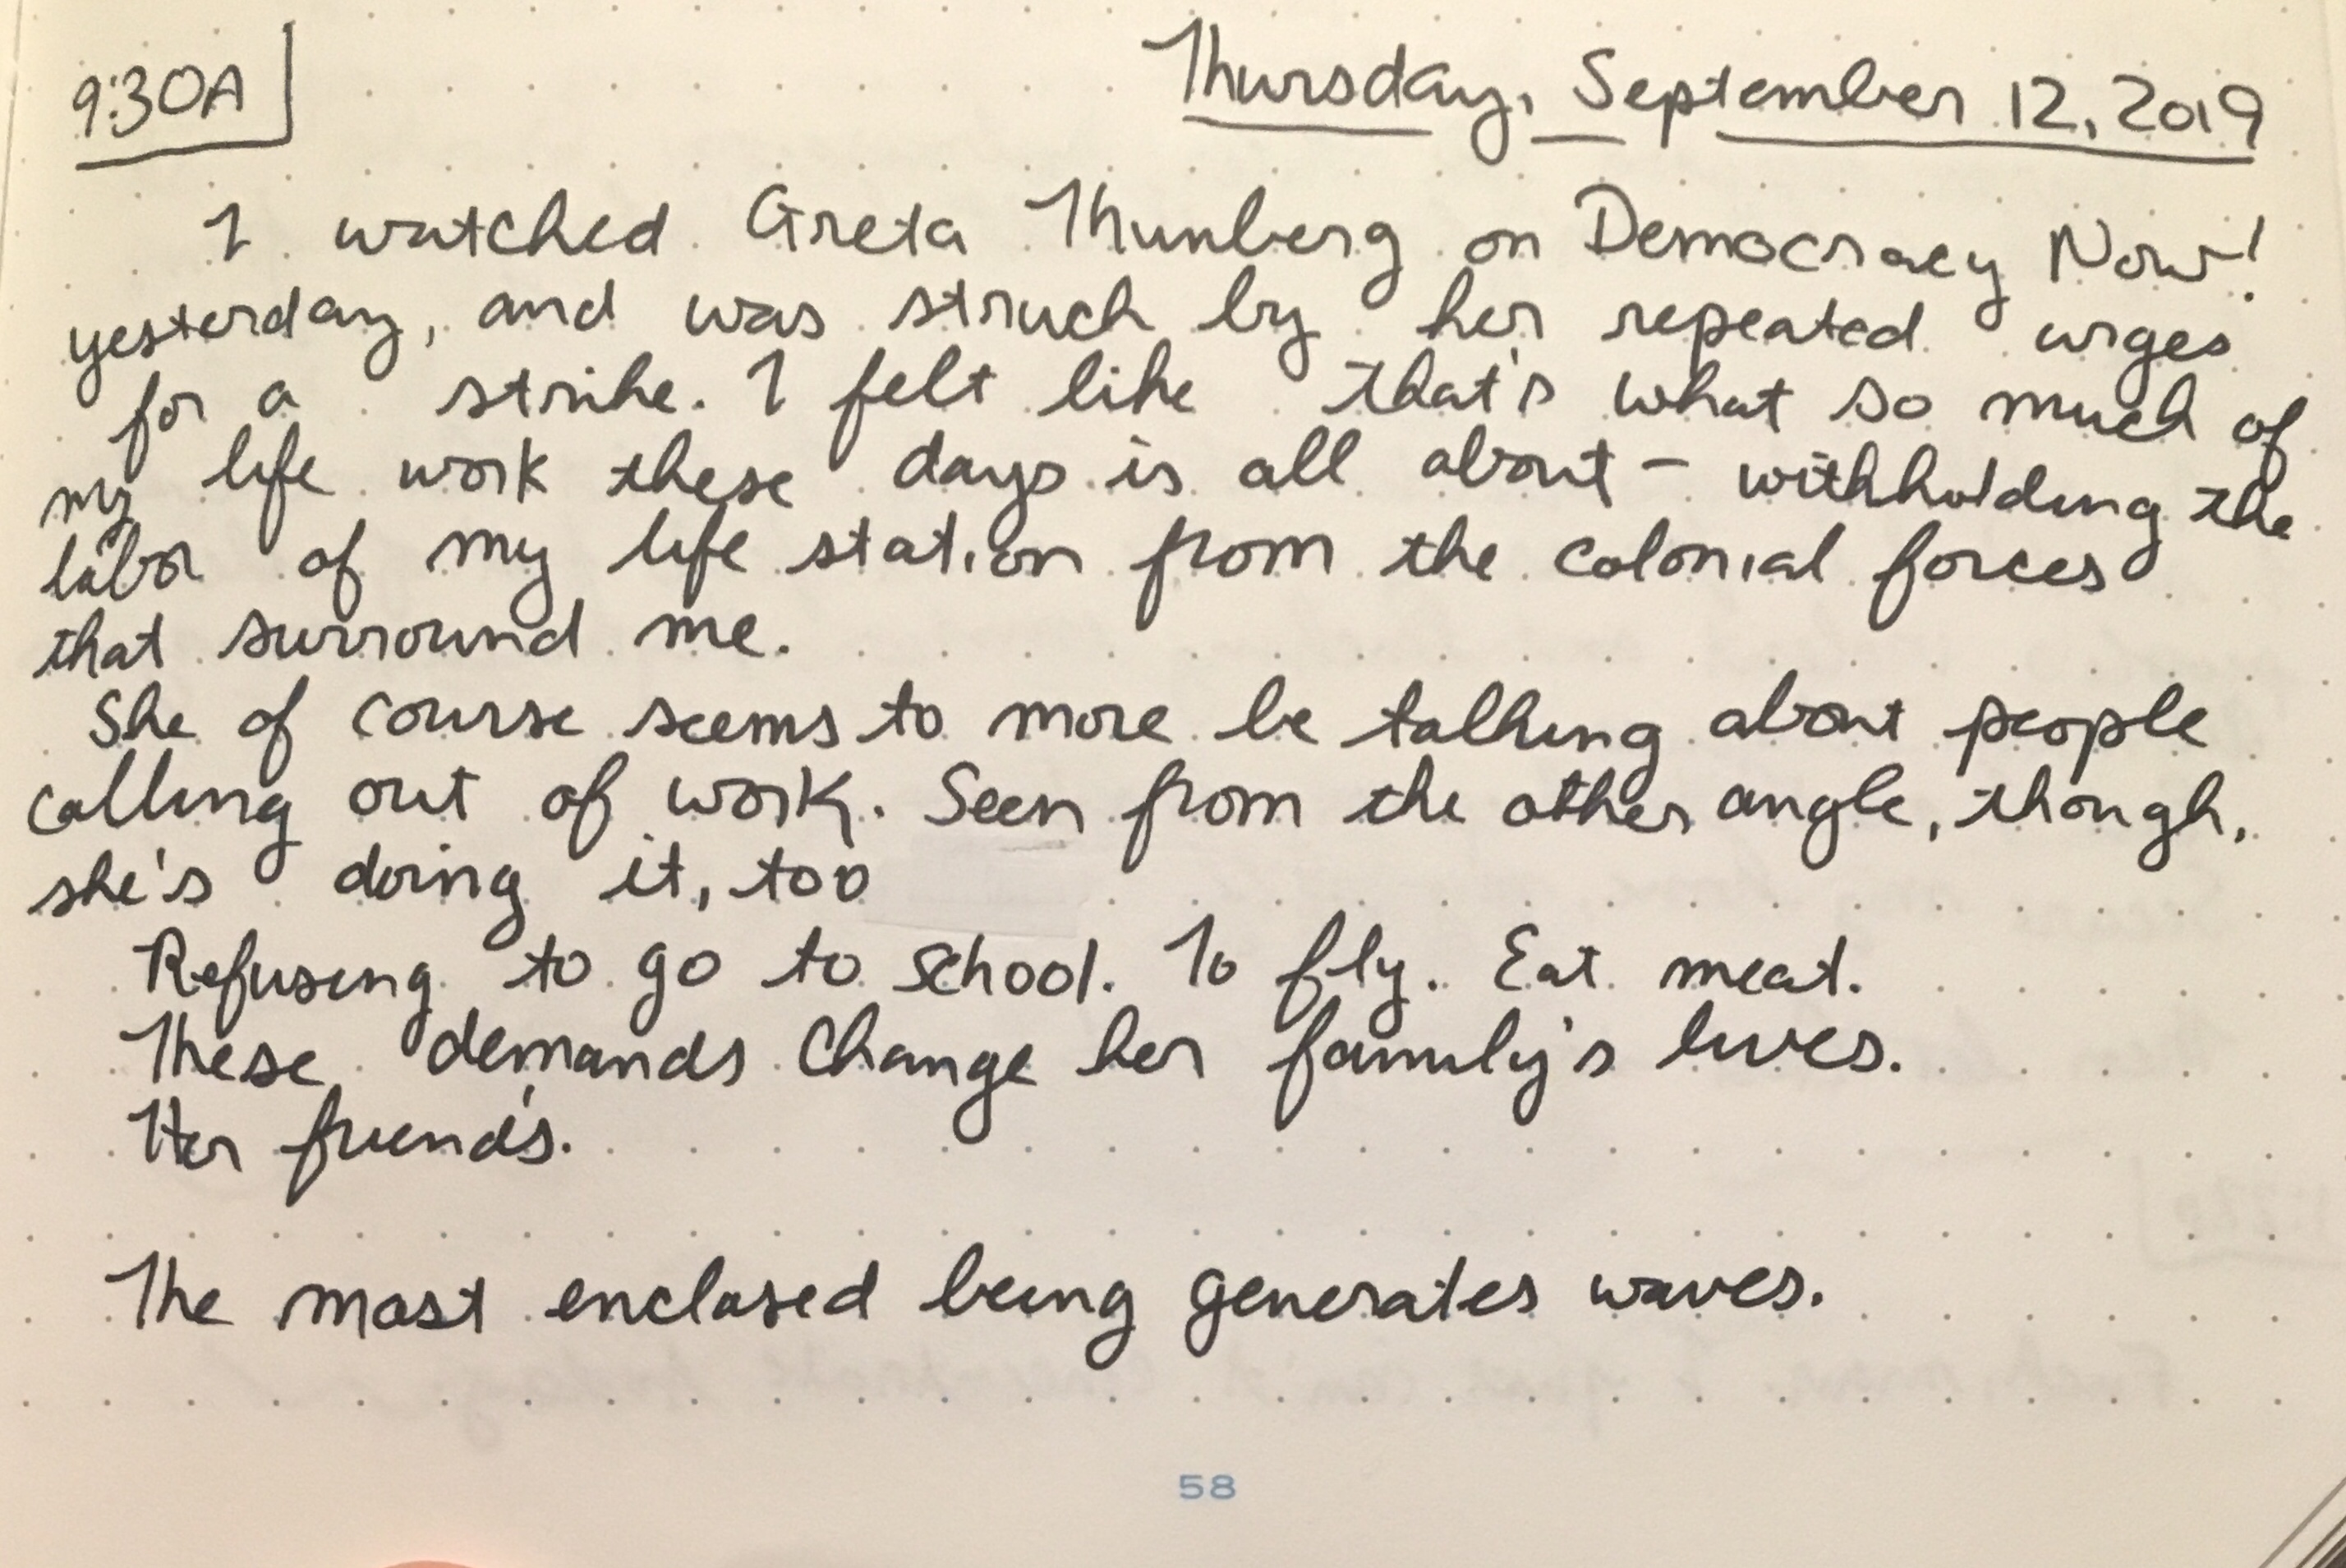 9:30A
Thursday, September 12, 2019
I watched Greta Thunberg on Democracy Now!
yesterday, and was struck by her repeated urges
for a strike. I felt like that's what so much of
my life work these days is all about - withholding the
labor of my life station from the colonial forces
that surround me.
She of course seems to more be talking about people
calling out of work. Seen from the other angle, though,
she's doing it, too
Refusing to go to school. To fly. Eat meat.
These demands change her family's lives.
Her friend's.
The most enclosed being generates waves.
58